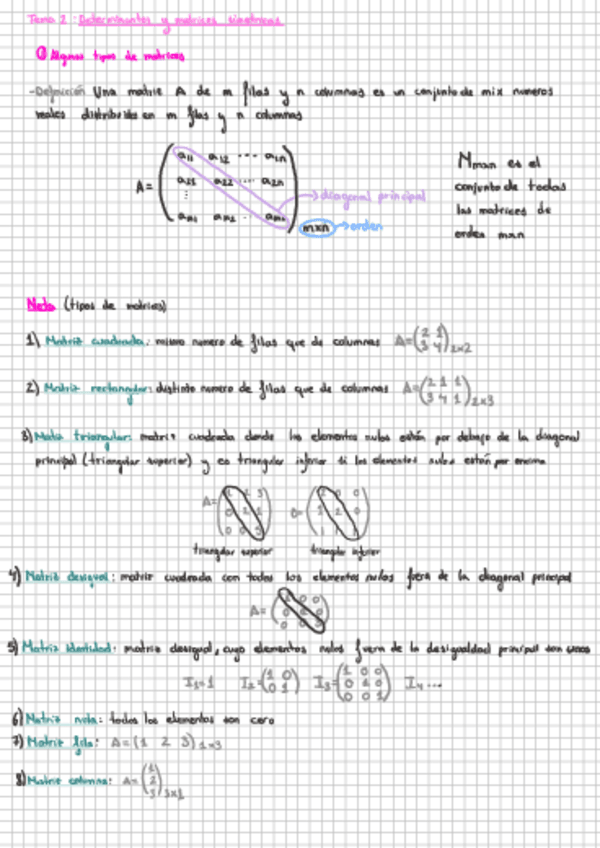 Tema 2: Determinantes y matrices simétricas
① Algunos tipos de matrices
-Definición Una matriz A de m filas y n columnas es un conjunto de mxn numeros
reales distribuidos en m filas y n columnas
a11 a12 ··· a1n
A= a21 a22 ··· a2n
→diagonal principal
mxn →orden
Mmxn es el
conjunto de todas
las matrices de
orden mxn
Nota (tipos de matrices)
1) Matriz cuadrada: mismo numero de filas que de columnas A=(2 1
3 4)2x2
2) Matriz rectangular: distinto numero de filas que de columnas A=(2 1 1
3 4 1)2x3
3) Matriz triangular: matriz cuadrada donde los elementos nulos están por debajo de la diagonal
principal (triangular superior) y es triangular inferior si los elementos nulos están por encima
triangular superior triangular inferior
4) Matriz desigual: matriz cuadrada con todos los elementos nulos fuera de la diagonal principal
A=
5) Matriz identidad: matriz desigual, cuyo elementos nulos fuera de la desigualdad principal son unos
I1=1 I2=(1 0
0 1) I3=(1 0 0
0 1 0
0 0 1) I4 ...
6) Matriz nula: todos los elementos son cero
7) Matriz fila: A=(1 2 3)1x3
8) Matriz columna: A=(1
2
3)3x1